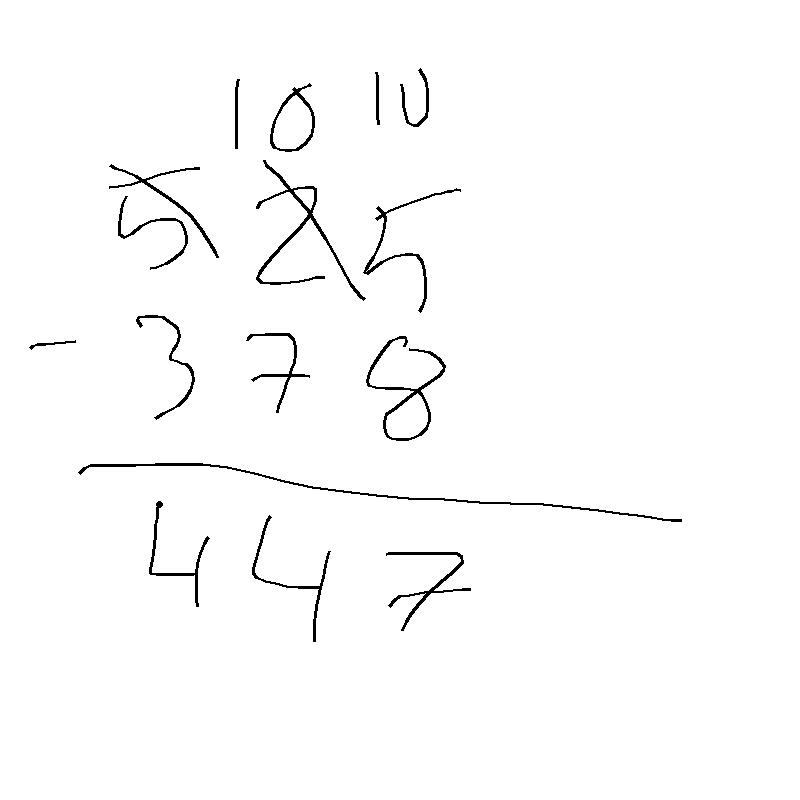 10 10
525
- 378
447